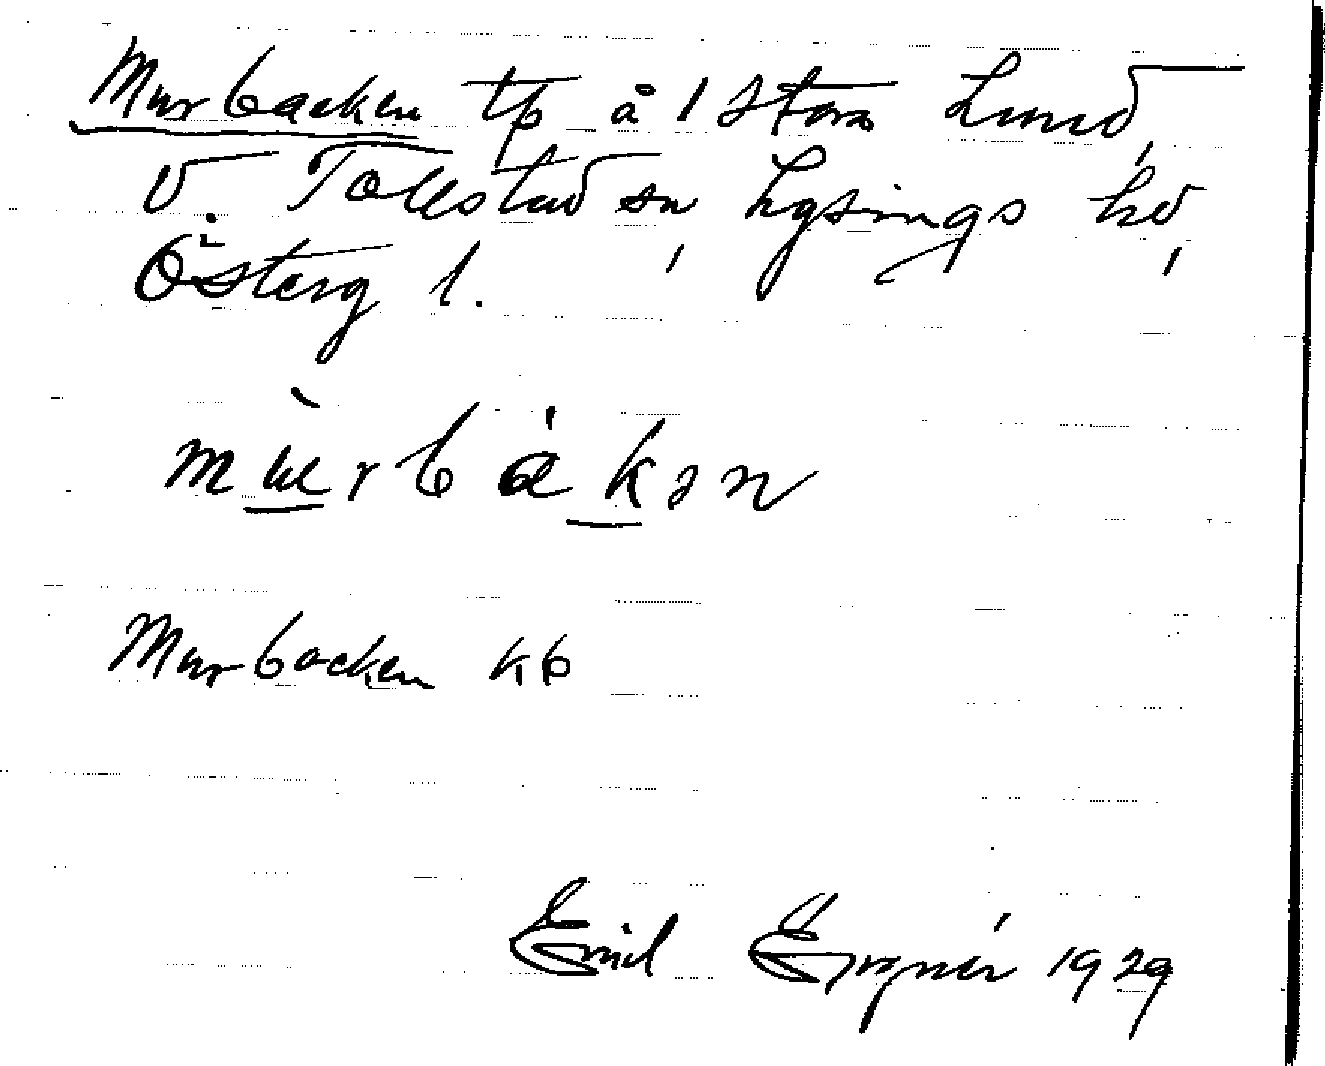 Murbacken tp å 1 Stora Lund,
V. Tollstad sn, Lysings hd,
Österg l.
mùrbákən
Murbacken kb
Emil 1929